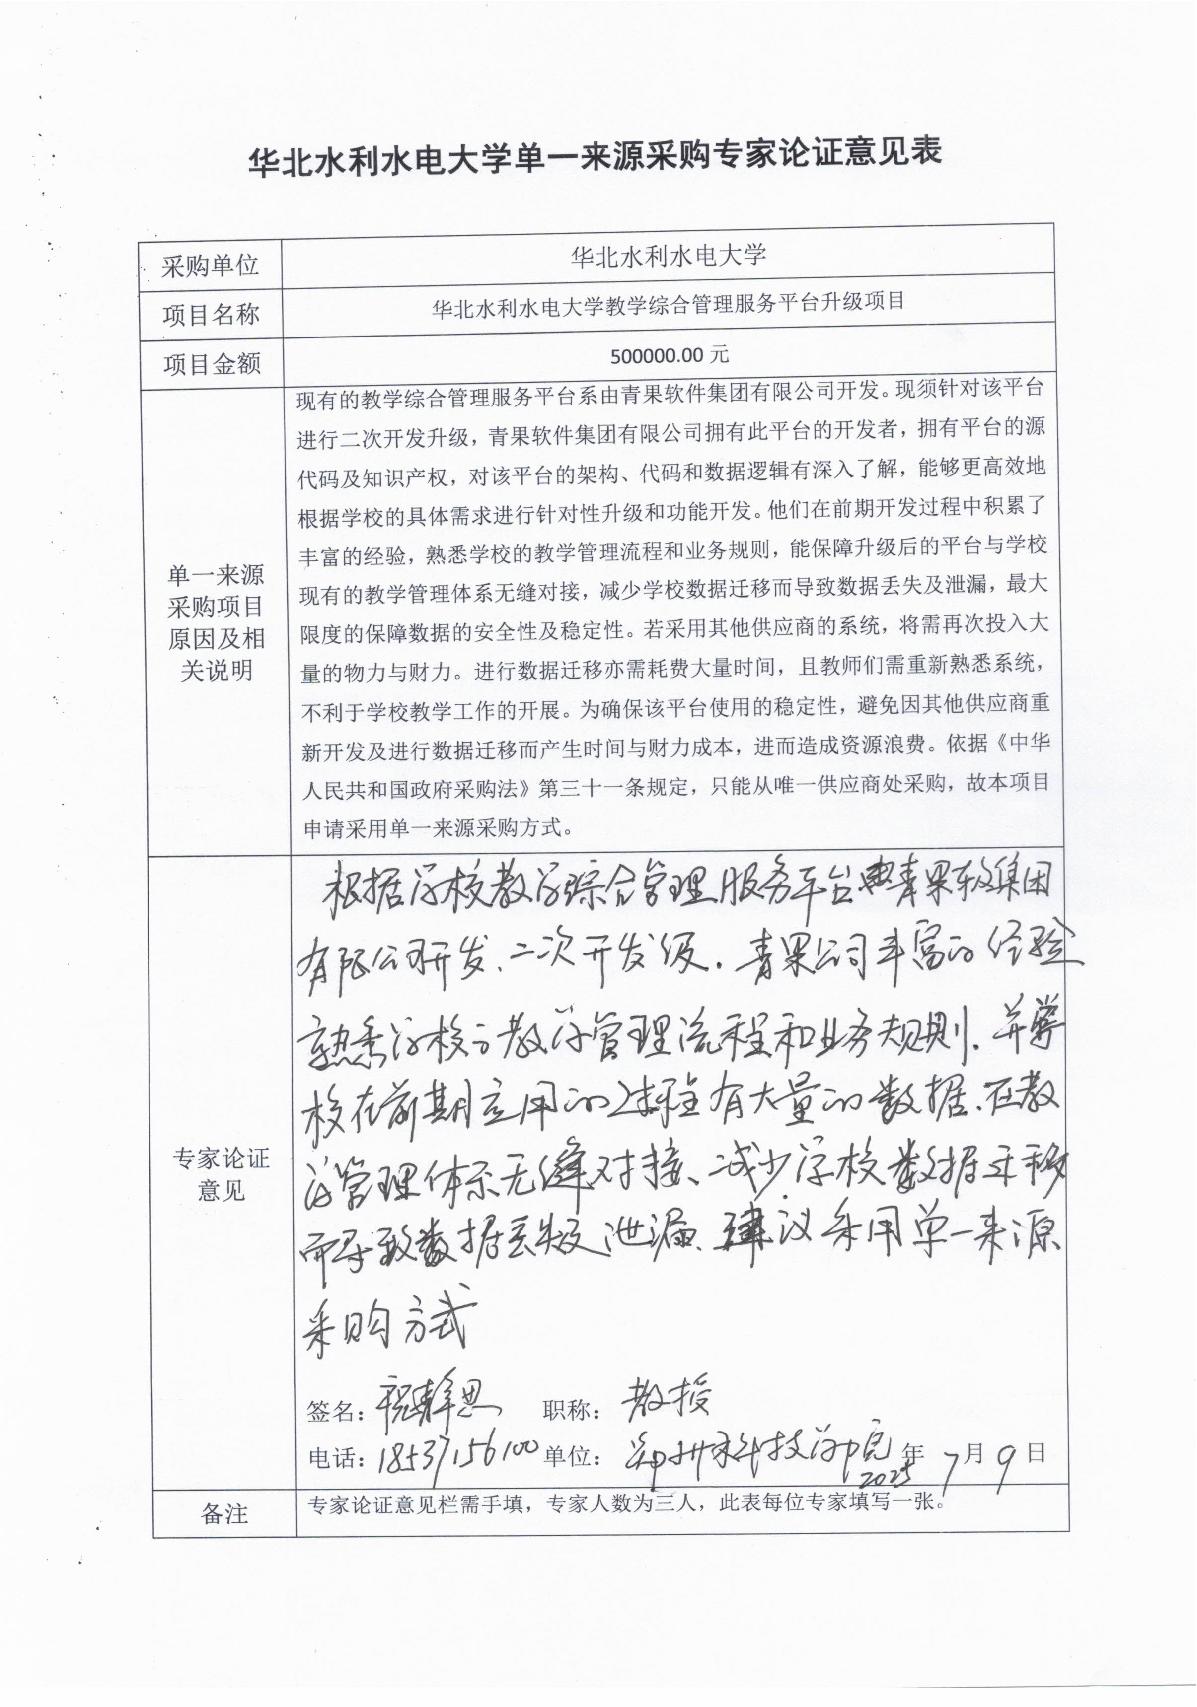 华北水利水电大学单一来源采购专家论证意见表
采购单位
华北水利水电大学
项目名称
华北水利水电大学教学综合管理服务平台升级项目
项目金额
500000.00 元
单一来源
采购项目
原因及相
关说明
现有的教学综合管理服务平台系由青果软件集团有限公司开发。现须针对该平台
进行二次开发升级，青果软件集团有限公司拥有此平台的开发者，拥有平台的源
代码及知识产权，对该平台的架构、代码和数据逻辑有深入了解，能够更高效地
根据学校的具体需求进行针对性升级和功能开发。他们在前期开发过程中积累了
丰富的经验，熟悉学校的教学管理流程和业务规则，能保障升级后的平台与学校
现有的教学管理体系无缝对接，减少学校数据迁移而导致数据丢失及泄漏，最大
限度的保障数据的安全性及稳定性。若采用其他供应商的系统，将需再次投入大
量的物力与财力。进行数据迁移亦需耗费大量时间，且教师们需重新熟悉系统，
不利于学校教学工作的开展。为确保该平台使用的稳定性，避免因其他供应商重
新开发及进行数据迁移而产生时间与财力成本，进而造成资源浪费。依据《中华
人民共和国政府采购法》第三十一条规定，只能从唯一供应商处采购，故本项目
申请采用单一来源采购方式。
专家论证
意见
根据学校教学综合管理服务平台由青果软件集团
有限公司开发、二次开发升级．青果公司丰富的经验
熟悉学校方教学管理流程和业务规则．并学
校在前期应用的过程有大量的数据．在教
学管理体系无缝对接、减少学校数据迁移
而导致数据丢失及泄漏、建议采用单一来源
采购方式
签名：祝静思 职称：教授
电话：18537156100 单位：郑州科技学院 2025年7月9日
备注
专家论证意见栏需手填，专家人数为三人，此表每位专家填写一张。